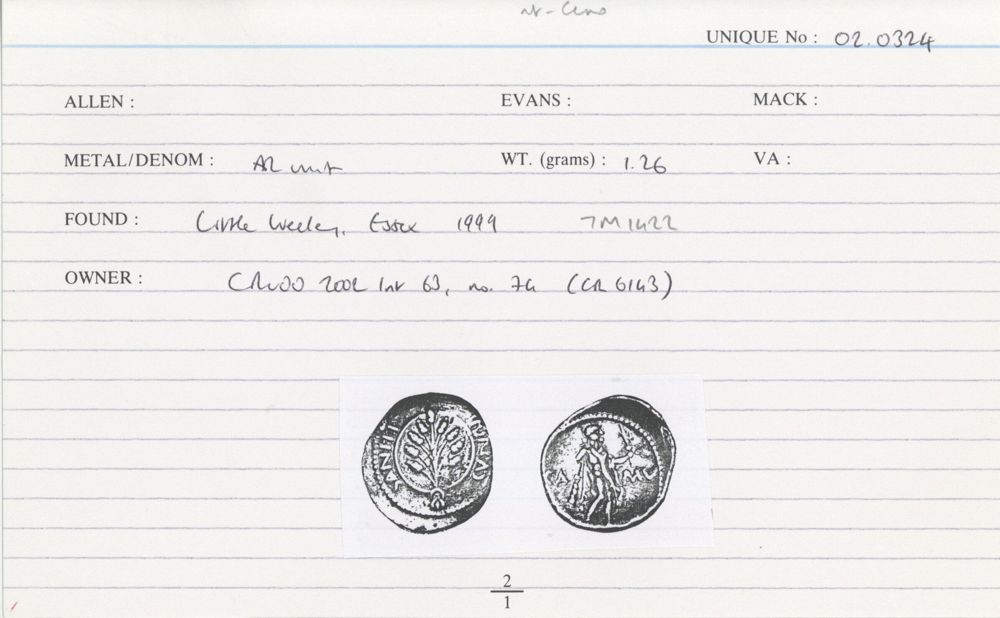 UNIQUE No : 02.0324
ALLEN : EVANS : MACK :
METAL/DENOM : AR unit WT. (grams) : 1.26 VA :
FOUND : Little Weeley, Essex 1999 TM1422
OWNER : CR 2002 63, no. 74 (CR 6143)
CA - MV
2
1